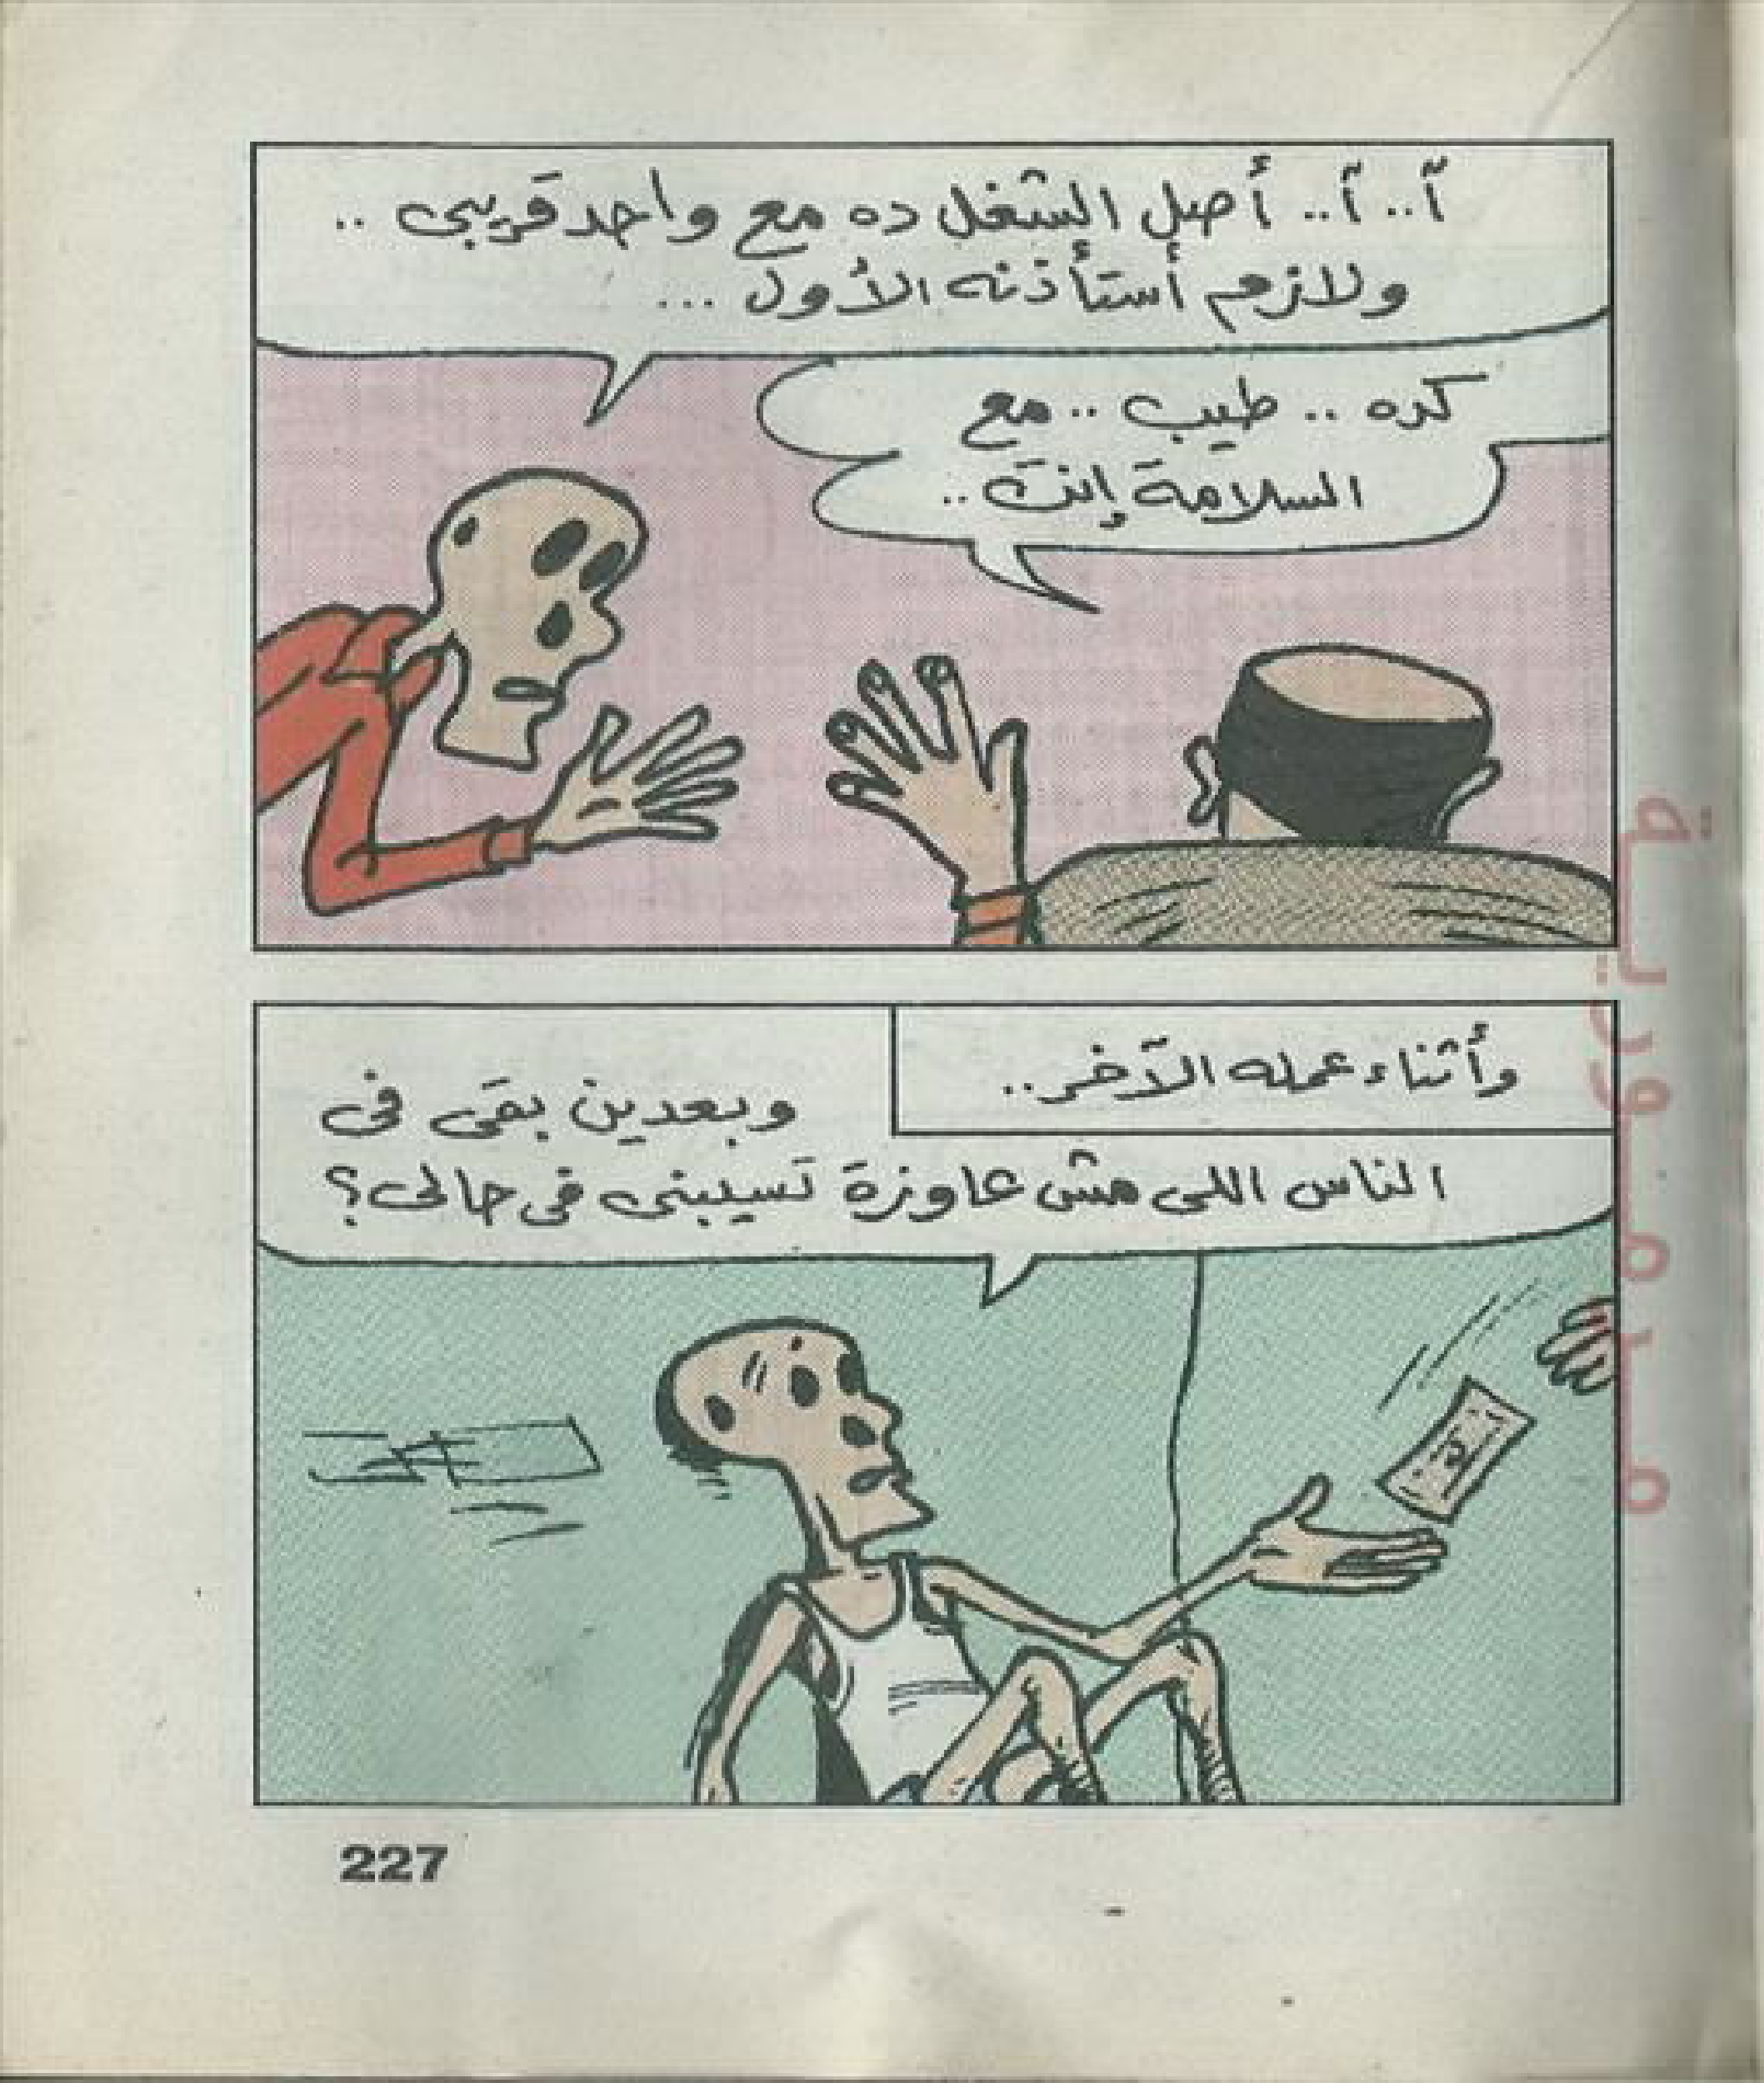 آ.. آ.. أصل الشغل ده مع واحد قريبى ..
ولازم أستأذنه الأول ...
كده .. طيب .. مع
السلامة إنت ..
وأثناء عمله الآخر..
وبعدين بقى فى
الناس اللى مش عاوزة تسيبنى فى حالى؟
227